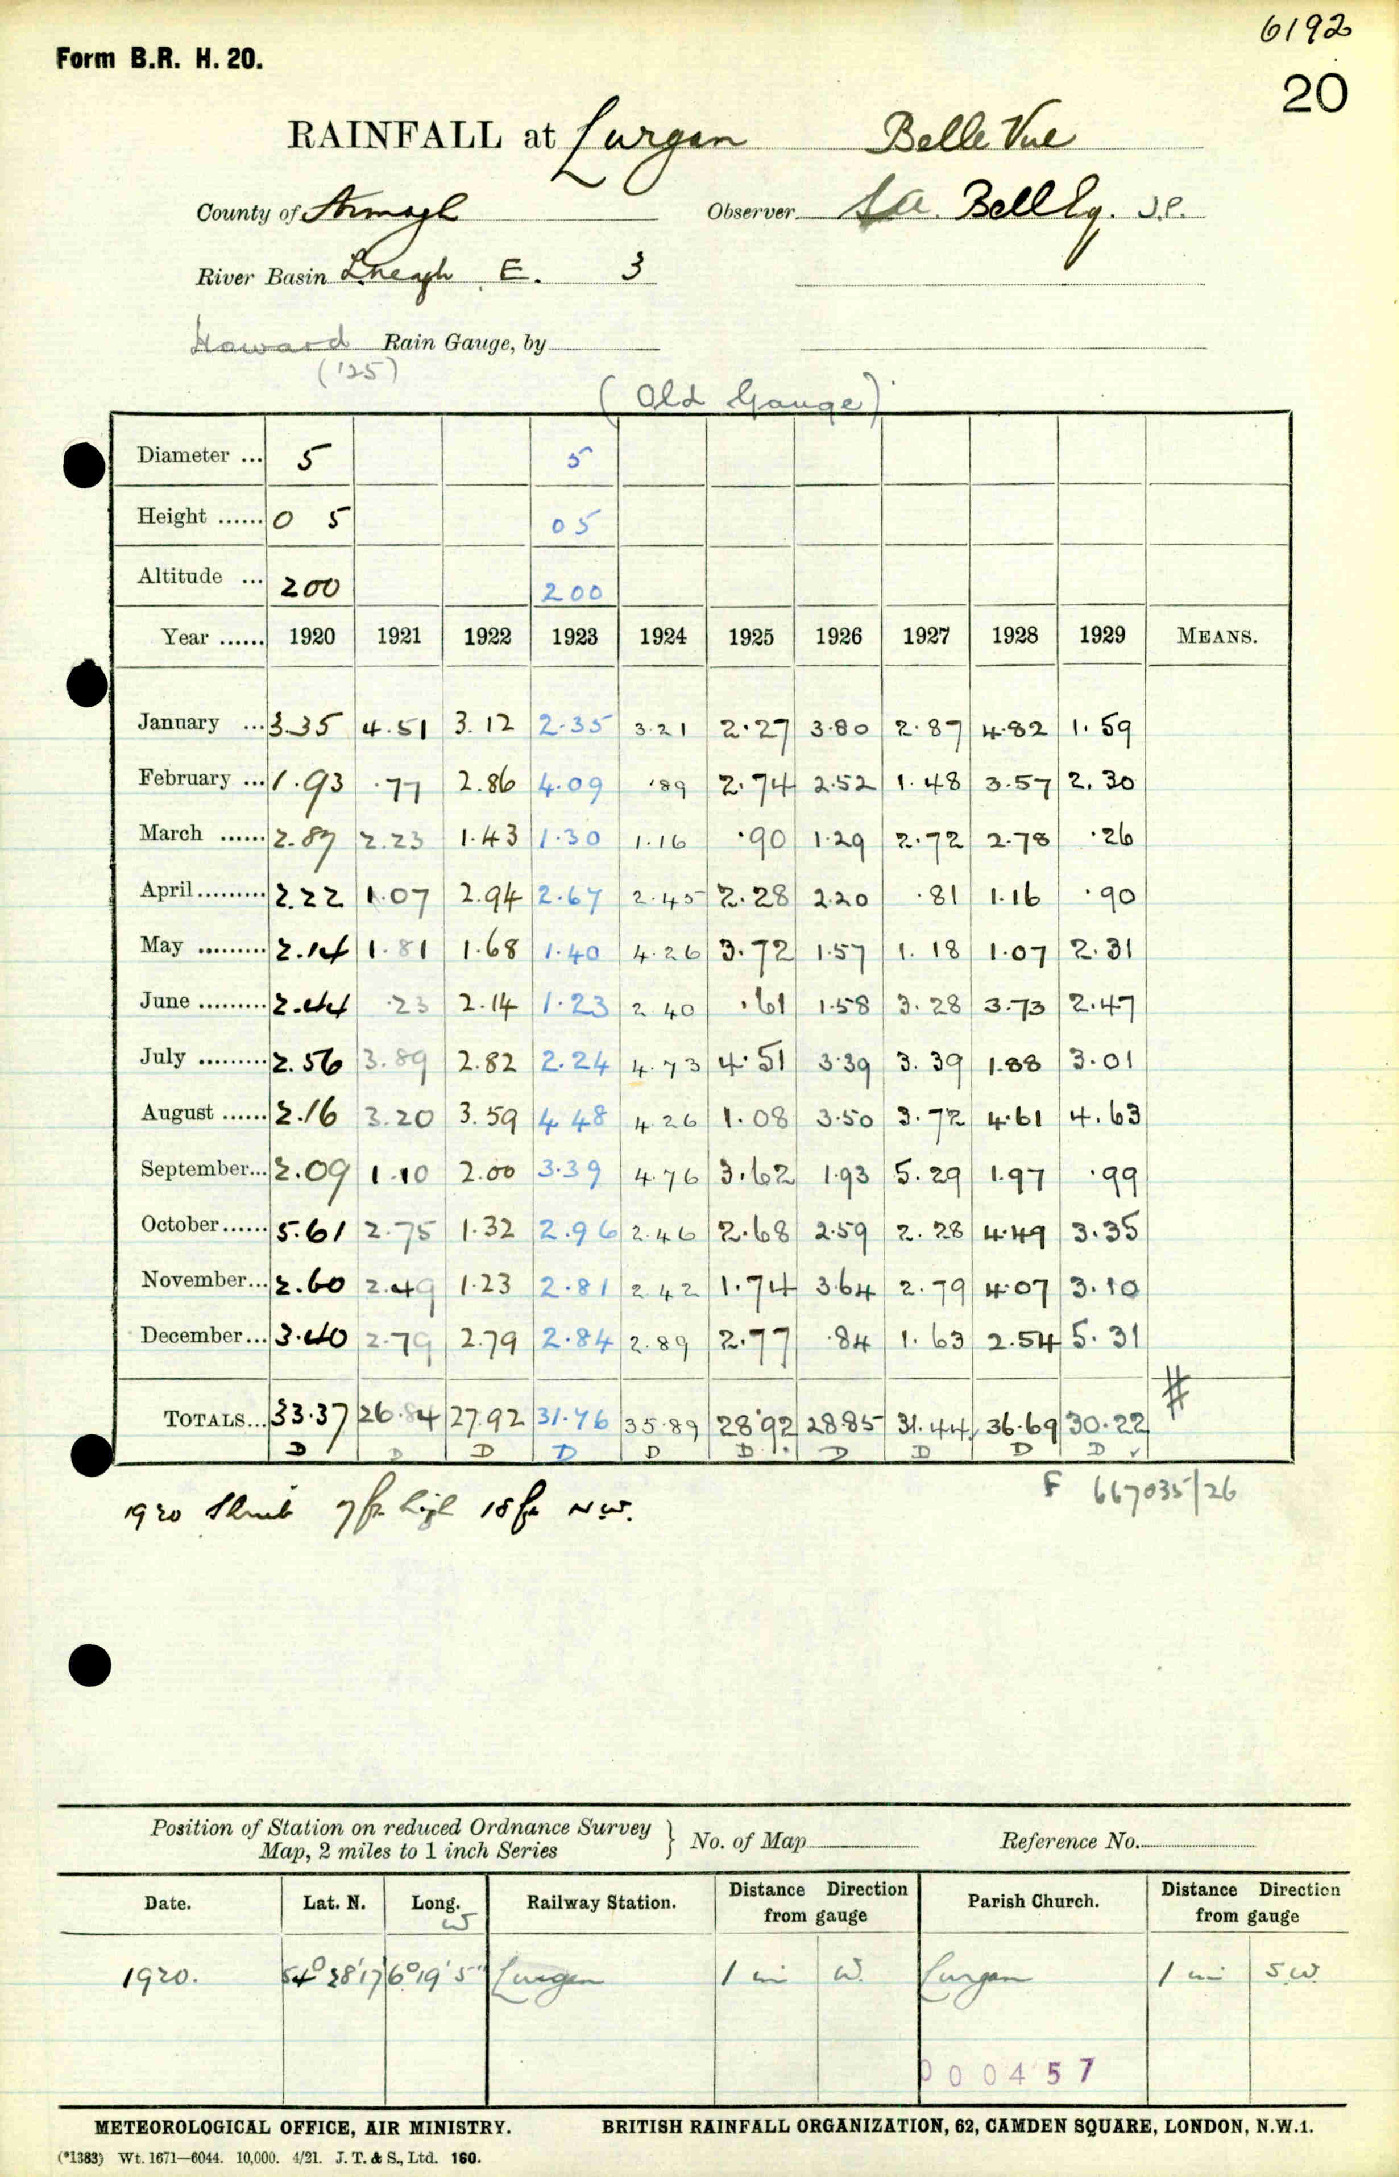 6192
Form B.R. H. 20.
20
RAINFALL at Lurgan Belle Vue
County of Armagh Observer Bell Esq. J.P.
River Basin L. Neagh E. 3
Howard Rain Gauge, by
('25)
(Old Gauge)
Diameter ... 5 5
Height ...... 0 5 0 5
Altitude ... 200 200
Year ...... 1920 1921 1922 1923 1924 1925 1926 1927 1928 1929 MEANS.
January ... 3.35 4.51 3.12 2.35 3.21 2.27 3.80 2.87 4.82 1.59
February ... 1.93 .77 2.86 4.09 .89 2.74 2.52 1.48 3.57 2.30
March ...... 2.87 2.23 1.43 1.30 1.16 .90 1.29 2.72 2.78 .26
April ......... 2.22 1.07 2.94 2.67 2.45 2.28 2.20 .81 1.16 .90
May ......... 2.14 1.81 1.68 1.40 4.26 3.72 1.57 1.18 1.07 2.31
June ......... 2.44 .23 2.14 1.23 2 40 .61 1.58 3.28 3.73 2.47
July ......... 2.56 3.89 2.82 2.24 4.73 4.51 3.39 3.39 1.88 3.01
August ...... 2.16 3.20 3.59 4 48 4 26 1.08 3.50 3.72 4.61 4.63
September... 2.09 1.10 2.00 3.39 4.76 3.62 1.93 5.29 1.97 .99
October...... 5.61 2.75 1.32 2.96 2.46 2.68 2.59 2.28 4.49 3.35
November... 2.60 2.49 1.23 2.81 2 42 1.74 3.64 2.79 4.07 3.10
December... 3.40 2.79 2.79 2.84 2.89 2.77 .84 1.63 2.54 5.31
TOTALS... 33.37 26.84 27.92 31.76 35.89 28.92 28.85 31.44 36.69 30.22 #
D D D D D D D D D D ✓
F 667035/26
1920 Shrub 7 ft high 18 ft N.W.
Position of Station on reduced Ordnance Survey
Map, 2 miles to 1 inch Series } No. of Map Reference No.
Date. Lat. N. Long. W Railway Station. Distance Direction from gauge Parish Church. Distance Direction from gauge
1920. 54° 28' 17 6° 19' 5" Lurgan 1 mi W. Lurgan 1 mi S.W.
000457
METEOROLOGICAL OFFICE, AIR MINISTRY. BRITISH RAINFALL ORGANIZATION, 62, CAMDEN SQUARE, LONDON, N.W.1.
(*1383) Wt. 1671—6044. 10,000. 4/21. J. T. & S., Ltd. 160.